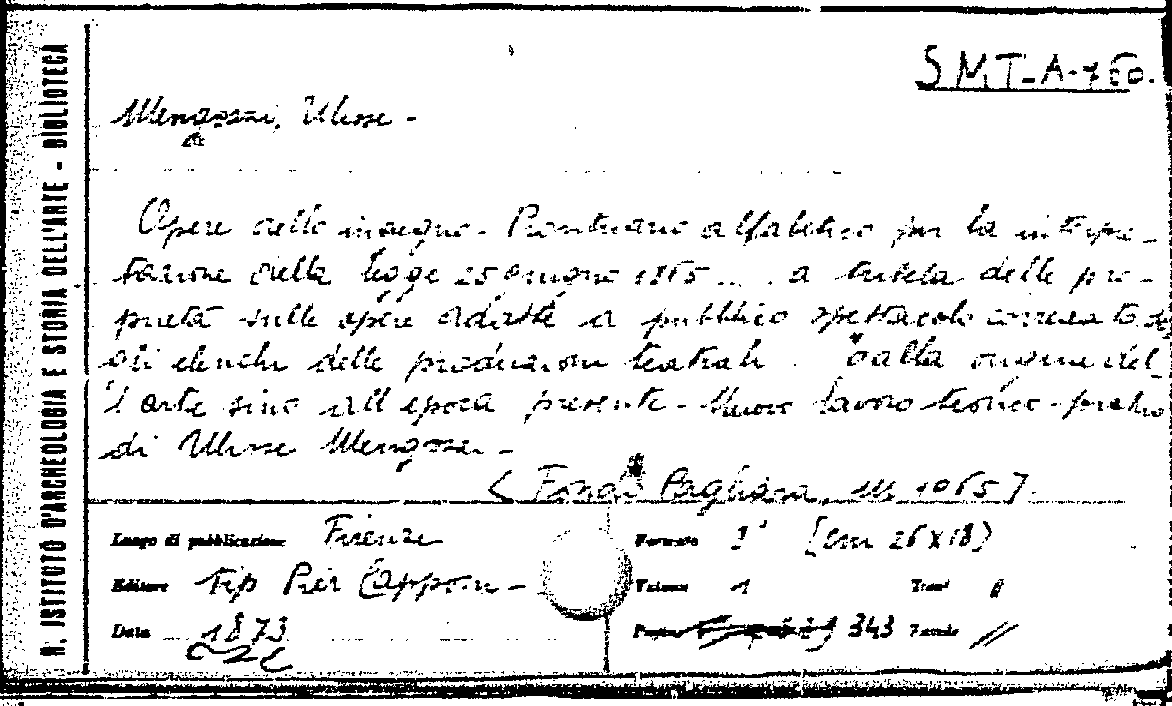 R. ISTITUTO D'ARCHEOLOGIA E STORIA DELL'ARTE - BIBLIOTECA
SMT-A-760.
Mengozzi, Ulisse -
Opere dello ingegno - Prontuario alfabetico per la interpre-
tazione della legge 25 giugno 1865 ... a tutela delle pro-
prietà sulle opere adatte a pubblico spettacolo corredato da
gli elenchi delle produzioni teatrali . dalla origine del-
l'arte sino all'epoca presente - Nuovo lavoro teorico-pratico
di Ulisse Mengozzi -
(Fondo Pagliara, 1065).
Luogo di pubblicazione Firenze
Formato 1' [cm 26 x 18)
Editore Tip Pier Capponi -
Volume 1 Tomi
Data 1873
Pagine 343 Tavole //